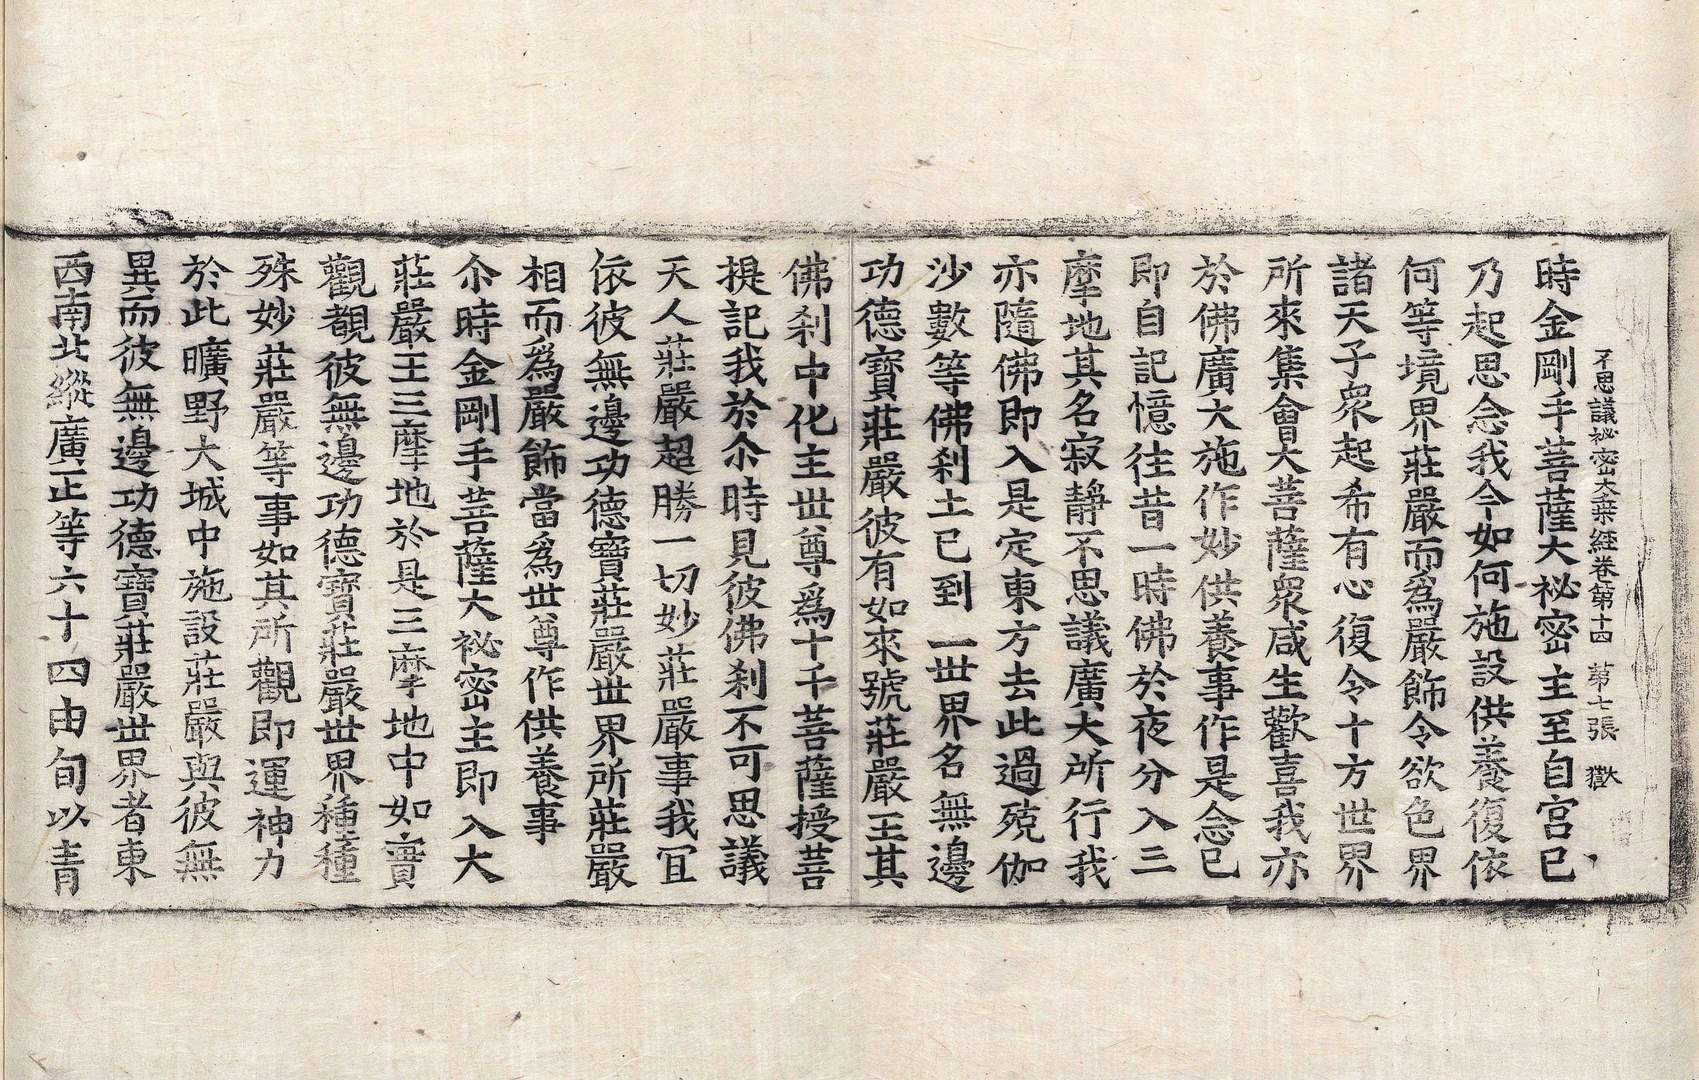 不思議祕密大乗經卷第十四 第七張 獄
時金剛手菩薩大祕密主至自宮已
乃起思念我今如何施設供養復依
何等境界莊嚴而爲嚴飾令欲色界
諸天子衆起希有心復令十方世界
所來集會大菩薩衆咸生歡喜我亦
於佛廣大施作妙供養事作是念已
即自記憶往昔一時佛於夜分入三
摩地其名寂靜不思議廣大所行我
亦隨佛即入是定東方去此過殑伽
沙數等佛刹土已到一世界名無邊
功德寶莊嚴彼有如來號莊嚴王其
佛刹中化主世尊爲十千菩薩授菩
提記我於尒時見彼佛刹不可思議
天人莊嚴超勝一切妙莊嚴事我冝
依彼無邊功德寶莊嚴世界所莊嚴
相而爲嚴飾當爲世尊作供養事
尒時金剛手菩薩大祕密主即入大
莊嚴王三摩地於是三摩地中如實
觀覩彼無邊功德寶莊嚴世界種種
殊妙莊嚴等事如其所觀即運神力
於此曠野大城中施設莊嚴與彼無
異而彼無邊功德寶莊嚴世界者東
西南北縱廣正等六十四由旬以青